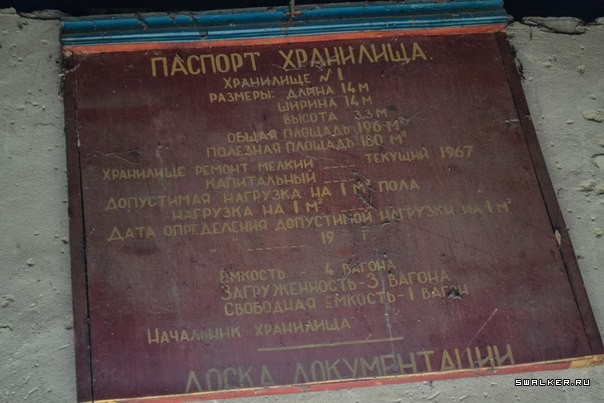 ПАСПОРТ ХРАНИЛИЩА.
ХРАНИЛИЩЕ №1
РАЗМЕРЫ: ДЛИНА 14 М
ШИРИНА 14 М
ВЫСОТА 3.3 М
ОБЩАЯ ПЛОЩАДЬ 196 М²
ПОЛЕЗНАЯ ПЛОЩАДЬ 180 М²
ХРАНИЛИЩЕ РЕМОНТ МЕЛКИЙ ____ ТЕКУЩИЙ 1967
КАПИТАЛЬНЫЙ ____
ДОПУСТИМАЯ НАГРУЗКА НА 1 М² ПОЛА
НАГРУЗКА НА 1 М² ____
ДАТА ОПРЕДЕЛЕНИЯ ДОПУСТИМОЙ НАГРУЗКИ НА 1 М²
____ 19 Г.
ЕМКОСТЬ - 4 ВАГОНА
ЗАГРУЖЕННОСТЬ-3 ВАГОНА
СВОБОДНАЯ ЕМКОСТЬ-1 ВАГОН
НАЧАЛЬНИК ХРАНИЛИЩА
ДОСКА ДОКУМЕНТАЦИИ
SWALKER.RU